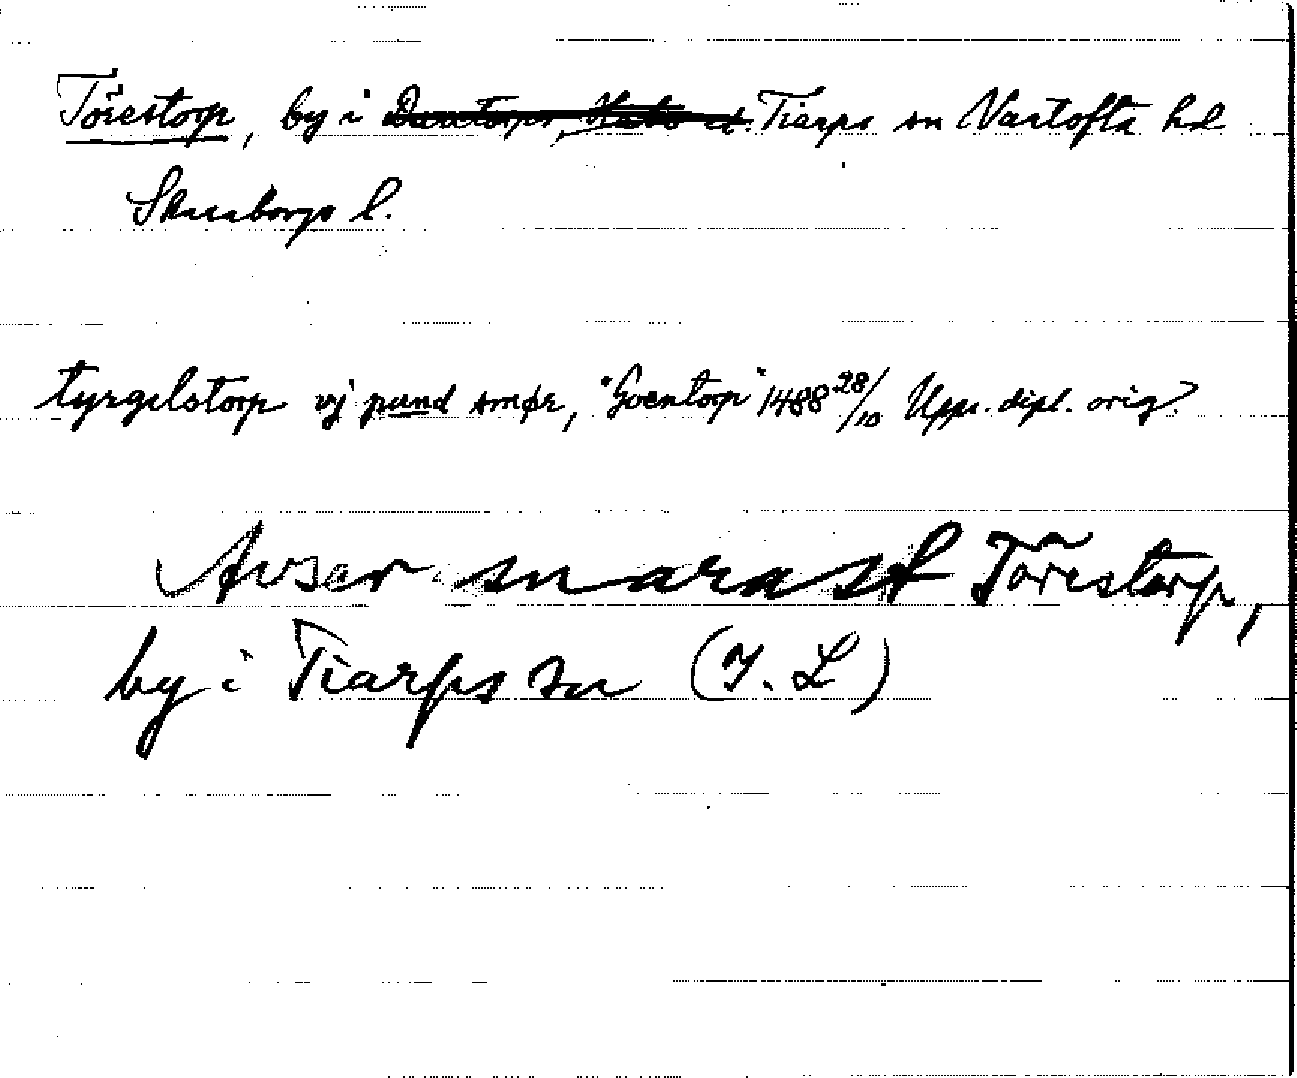 Törestorp, by i Tiarps sn Vartofta hd
Skaraborgs l.
tyrgilstorp vj pund smør, "Goentorp" 1488 28/10 Upps. dipl. orig.
Avser snarast Törestorp,
by i Tiarps sn (I. L)